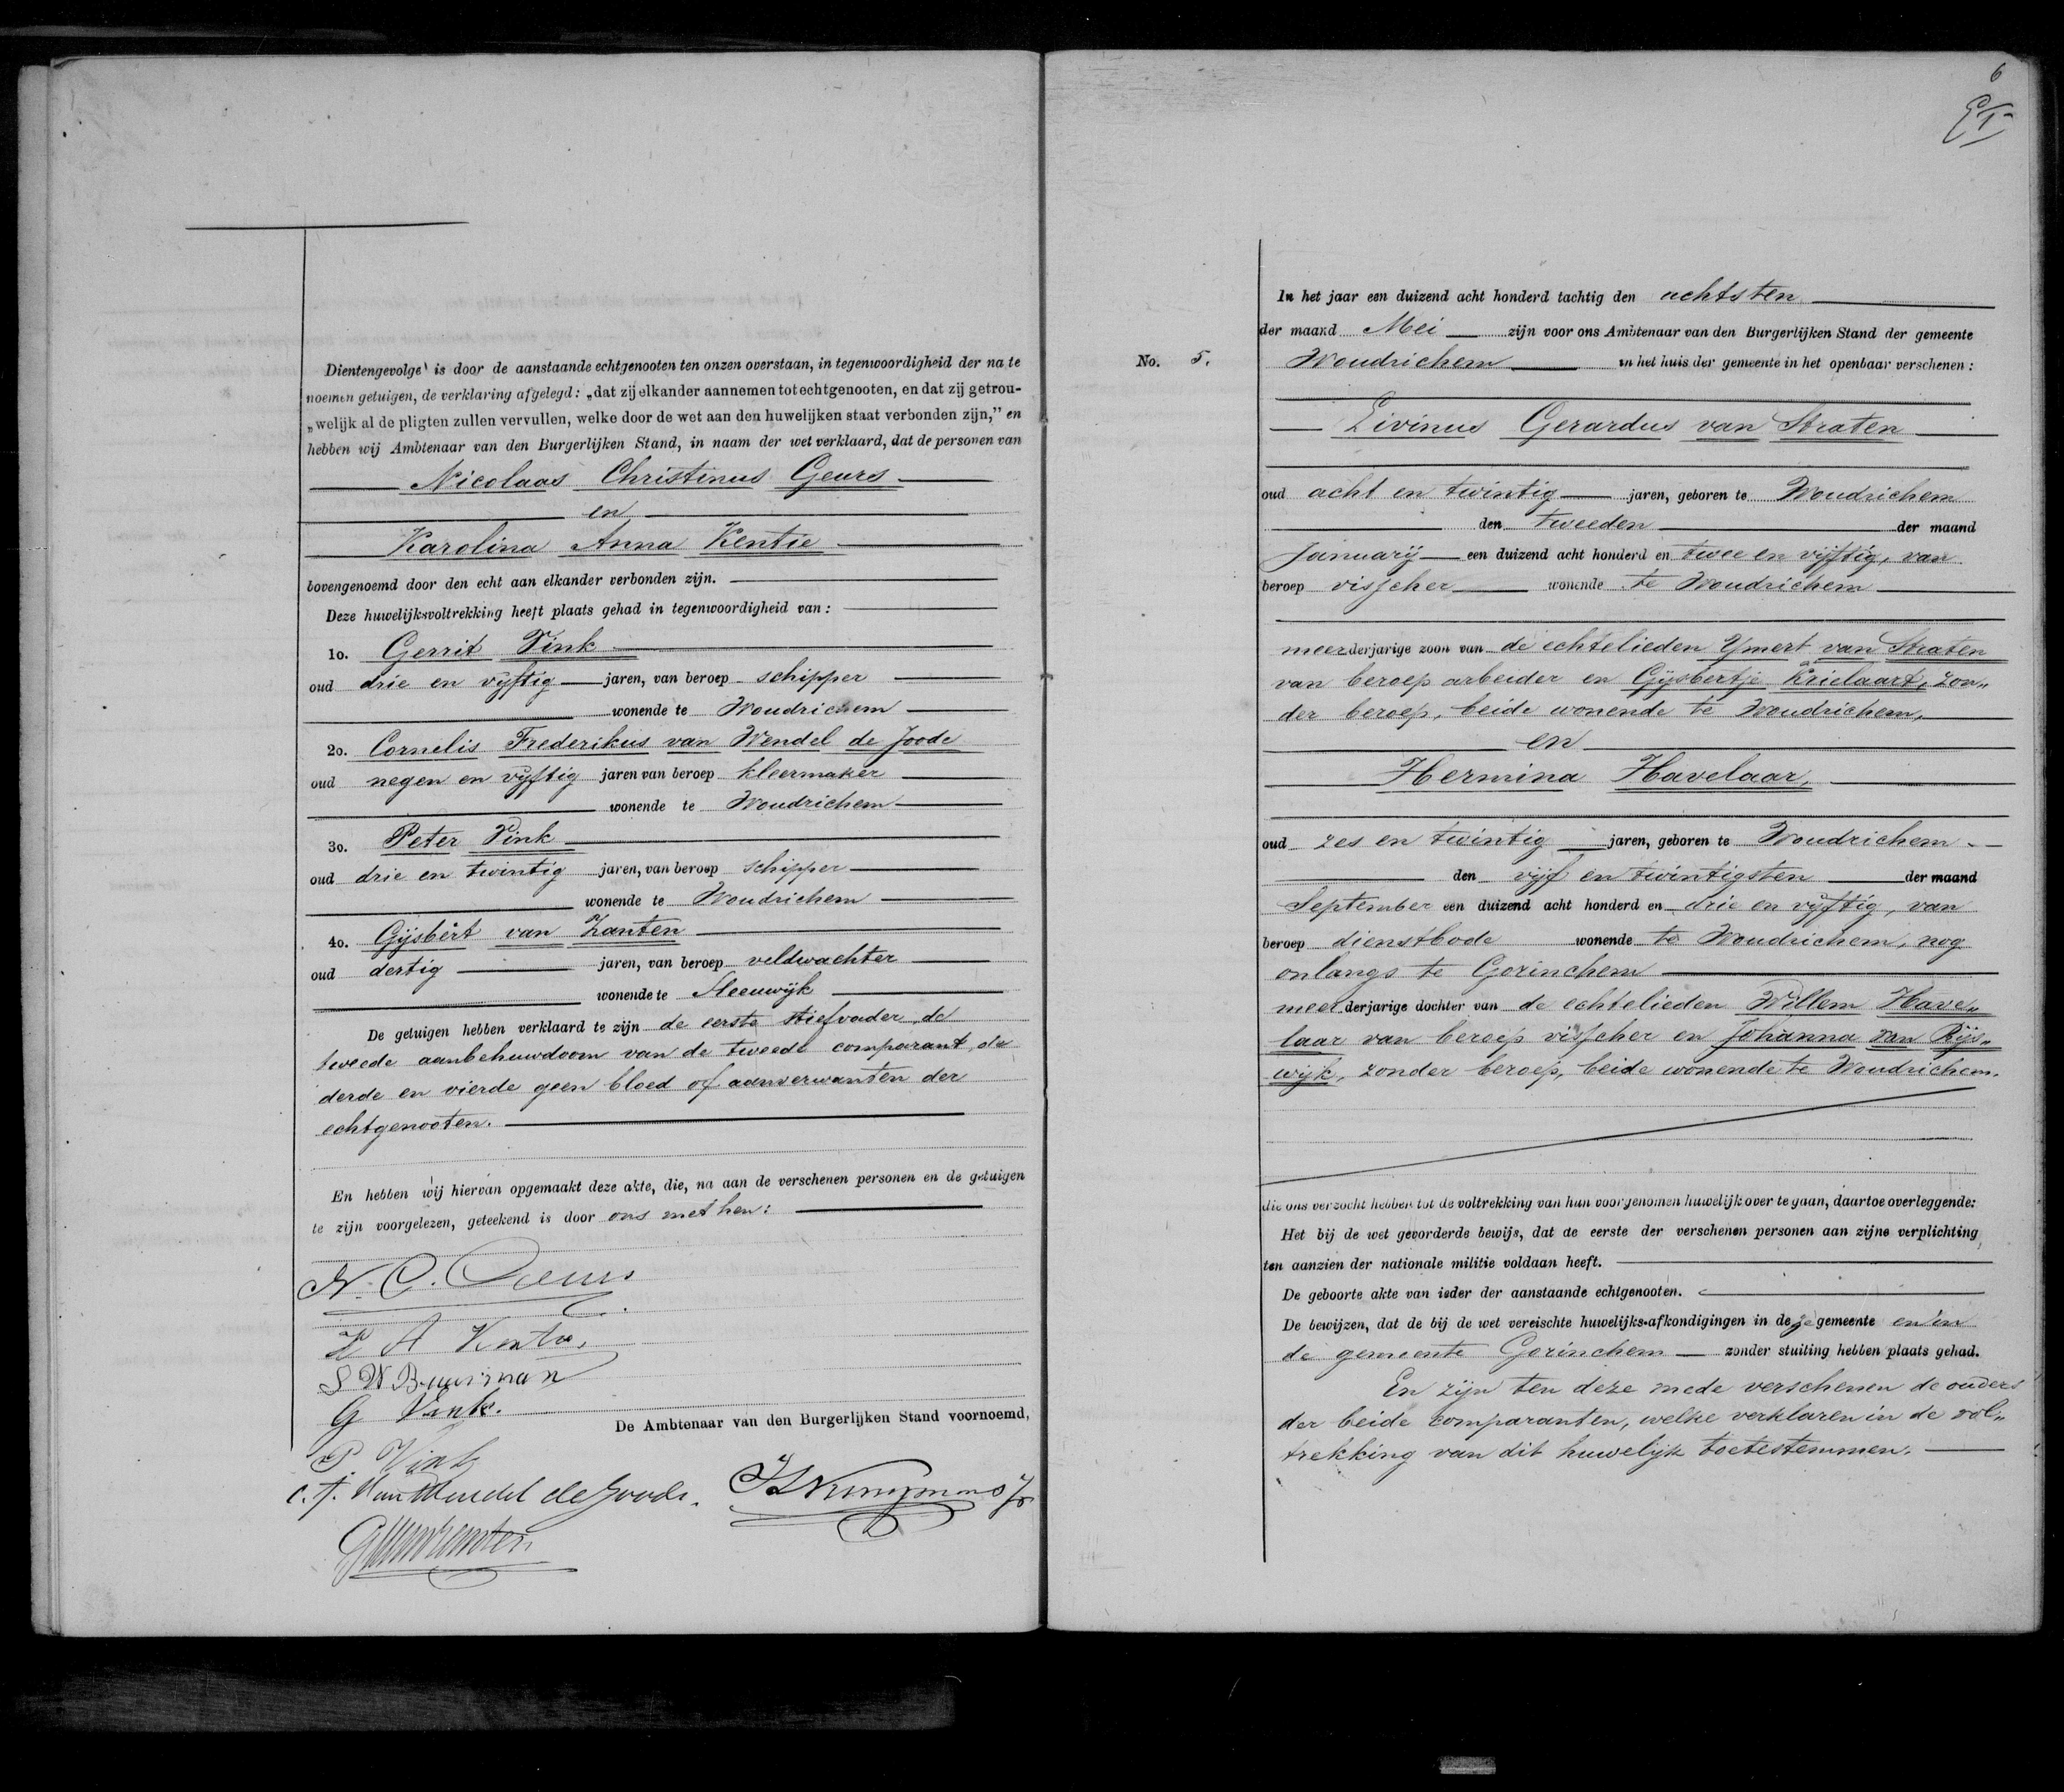 Dientengevolge is door de aanstaande echtgenooten ten onzen overstaan, in tegenwoordigheid der na te
noemen getuigen, de verklaring afgelegd: „dat zij elkander aannemen tot echtgenooten, en dat zij getrou-
„welijk al de pligten zullen vervullen, welke door de wet aan den huwelijken staat verbonden zijn,” en
hebben wij Ambtenaar van den Burgerlijken Stand, in naam der wet verklaard, dat de personen van
Nicolaas Christinus Geurs
en
Karolina Anna Kentie
bovengenoemd door den echt aan elkander verbonden zijn.
Deze huwelijksvoltrekking heeft plaats gehad in tegenwoordigheid van:
1o. Gerrit Vink
oud drie en vijftig jaren, van beroep schipper
wonende te Woudrichem
2o. Cornelis Frederikus van Wendel de Joode
oud negen en vijftig jaren van beroep kleermaker
wonende te Woudrichem
3o. Peter Vink
oud drie en twintig jaren, van beroep schipper
wonende te Woudrichem
4o. Gijsbert van Zanten
oud dertig jaren, van beroep veldwachter
wonende te Sleeuwijk
De getuigen hebben verklaard te zijn de eerste stiefvader, de
tweede aanbehuwdoom van de tweede comparant, de
derde en vierde geen bloed of aanverwanten der
echtgenooten.
En hebben wij hiervan opgemaakt deze akte, die, na aan de verschenen personen en de getuigen
te zijn voorgelezen, geteekend is door ons met hen:
N. C. Geurs
K A Kentie
S W Buurman
G Vink.
De Ambtenaar van den Burgerlijken Stand voornoemd,
P Vink
C. F. van Wendel de Joode.
6
No. 5.
In het jaar een duizend acht honderd tachtig den achtsten
der maand Mei zijn voor ons Ambtenaar van den Burgerlijken Stand der gemeente
Woudrichem in het huis der gemeente in het openbaar verschenen:
Livinus Gerardus van Straten
oud acht en twintig jaren, geboren te Woudrichem
den tweeden der maand
Januarij een duizend acht honderd en twee en vijftig, van
beroep visscher wonende te Woudrichem
meerderjarige zoon van de echtelieden Ymert van Straten
van beroep arbeider en Gijsbertje Krielaart, zon„
der beroep, beide wonende te Woudrichem,
en
Hermina Havelaar,
oud zes en twintig jaren, geboren te Woudrichem
den vijf en twintigsten der maand
September een duizend acht honderd en drie en vijftig, van
beroep dienstbode wonende te Woudrichem, nog
onlangs te Gorinchem
meerderjarige dochter van de echtelieden Willem Have„
laar van beroep visscher en Johanna van Rijs„
wijk, zonder beroep, beide wonende te Woudrichem.
die ons verzocht hebben tot de voltrekking van hun voorgenomen huwelijk over te gaan, daartoe overleggende:
Het bij de wet gevorderde bewijs, dat de eerste der verschenen personen aan zijne verplichting
ten aanzien der nationale militie voldaan heeft.
De geboorte akte van ieder der aanstaande echtgenooten.
De bewijzen, dat de bij de wet vereischte huwelijks-afkondigingen in deze gemeente en in
de gemeente Gorinchem zonder stuiting hebben plaats gehad.
En zijn ten deze mede verschenen de ouders
der beide comparanten, welke verklaren in de vol„
trekking van dit huwelijk toetestemmen.